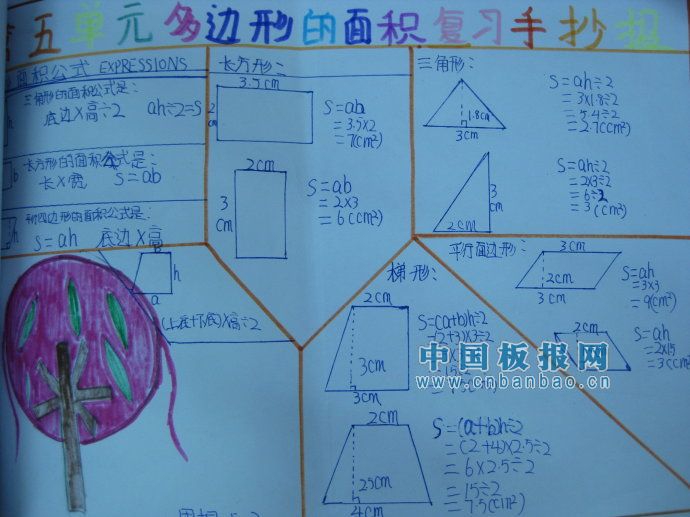 五单元多边形的面积复习手抄报
面积公式 EXPRESSIONS
三角形的面积公式是:
底边×高÷2 ah÷2=S
h
长方形的面积公式是:
长×宽 S=ab
b
平行四边形的面积公式是:
S=ah 底边×高
h
a
(上底+下底)×高÷2
长方形:
3.5cm
2
cm
S=ab
=3.5×2
=7(cm²)
2cm
3
cm
S=ab
=2×3
=6(cm²)
三角形:
1.8cm
3cm
S=ah÷2
=3×1.8÷2
=5.4÷2
=2.7(cm²)
3
cm
2cm
S=ah÷2
=2×3÷2
=6÷2
=3(cm²)
梯形:
2cm
3cm
3cm
S=(a+b)h÷2
=(2+3)×3÷2
=15÷2
2cm
2.5cm
4cm
S=(a+b)h÷2
=(2+4)×2.5÷2
=6×2.5÷2
=15÷2
=7.5(cm²)
平行四边形:
3cm
2cm
3cm
S=ah
=3×3
=9(cm²)
2cm
S=ah
=2×1.5
=3(cm²)
中国板报网
www.cnbanbao.cn